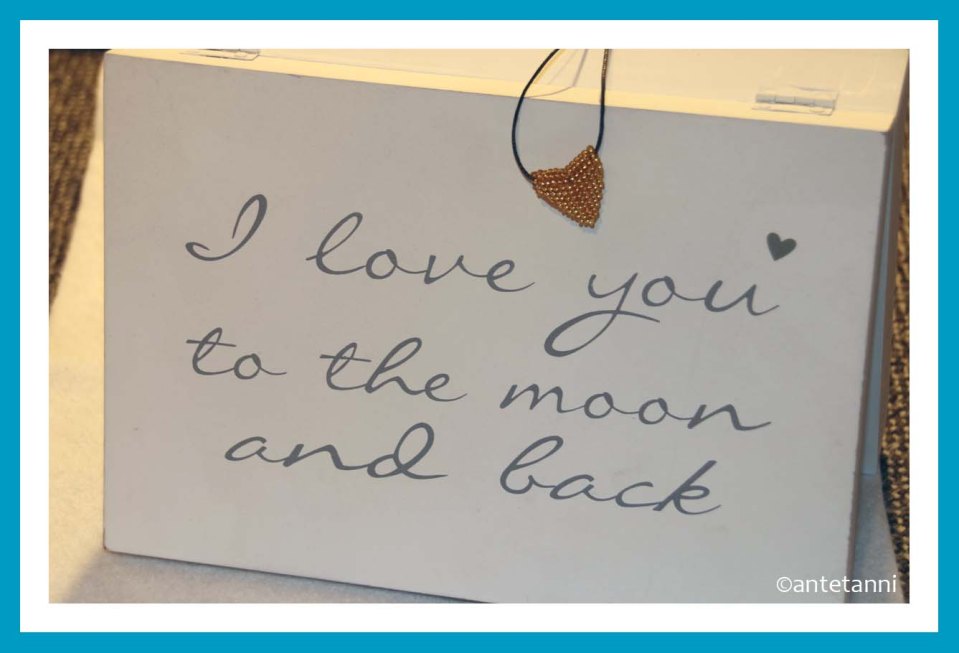 I love you
to the moon
and back
©antetanni